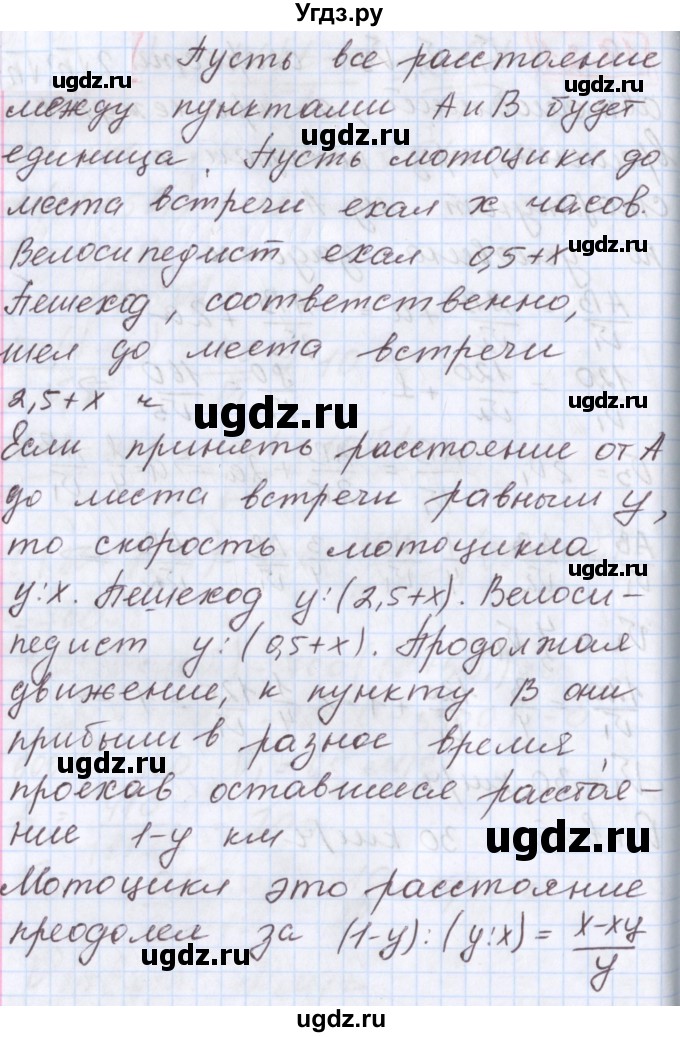 Угдз.ру
Пусть все расстояние
между пунктами А и В будет
единица. Пусть мотоцикл до
места встречи ехал х часов.
Велосипедист ехал 0,5+х
Пешеход, соответственно,
шел до места встречи
2,5+х ч
Если принять расстояние от А
до места встречи равным у,
то скорость мотоцикла
у:х. Пешеход у:(2,5+х). Велоси-
педист у:(0,5+х). Продолжая
движение, к пункту В они
прибыли в разное время,
проехав оставшееся расстоя-
ние 1-у км
Мотоцикл это расстояние
преодолел за (1-у):(у:х)= х-ху/у
ugdz.ru
ugdz.ru
ugdz.ru
ugdz.ru
ugdz.ru
ugdz.ru
ugdz.ru
ugdz.ru
ugdz.ru
ugdz.ru
ugdz.ru